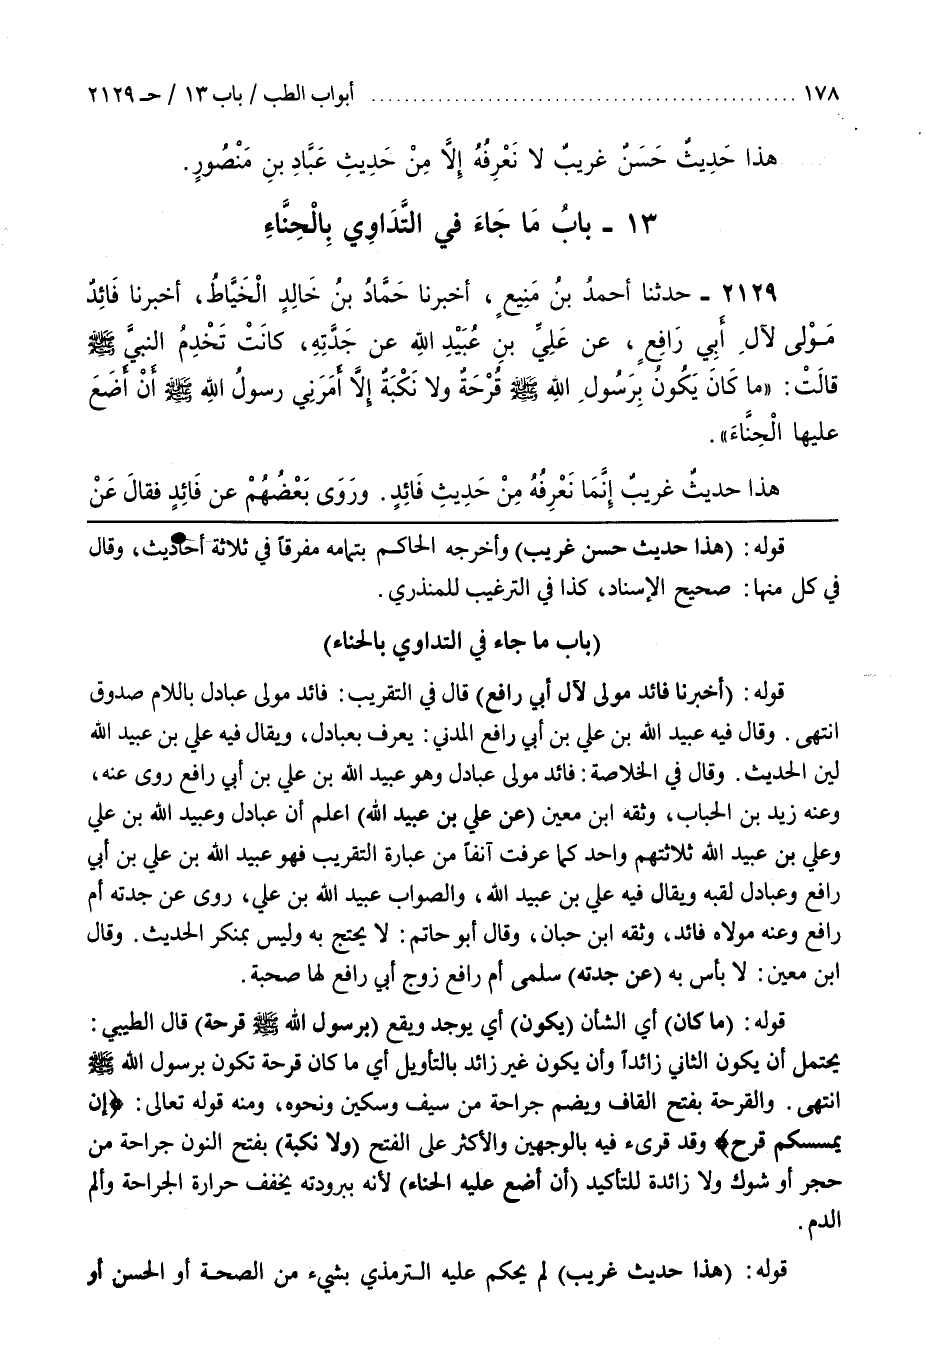 ١٧٨ ................................................ أبواب الطب / باب ١٣ / حـ ٢١٢٩
هذا حَدِيثٌ حَسَنٌ غريبٌ لا نَعْرِفُهُ إلَّا مِنْ حَدِيثِ عَبَّادِ بنِ مَنْصُورٍ.
١٣ ـ بابُ مَا جَاءَ في التَّدَاوِي بِالْحِنَّاءِ
٢١٢٩ ـ حدثنا أحمدُ بنُ مَنِيعٍ، أخبرنا حَمَّادُ بنُ خَالِدٍ الْخَيَّاطُ، أخبرنا فَائِدٌ
مَوْلى لآلِ أَبي رَافِعٍ، عن عَلِيِّ بنِ عُبَيْدِ اللهِ عن جَدَّتِهِ، كانَتْ تَخْدِمُ النبيَّ ﷺ
قالَتْ: «ما كَانَ يَكُونُ بِرَسُولِ اللهِ ﷺ قُرْحَةٌ ولا نَكْبَةٌ إلَّا أَمَرَنِي رسولُ اللهِ ﷺ أَنْ أَضَعَ
عليها الْحِنَّاءَ».
هذا حديثٌ غريبٌ إنَّمَا نَعْرِفُهُ مِنْ حَدِيثِ فَائِدٍ. ورَوَى بَعْضُهُمْ عن فَائِدٍ فقالَ عَنْ
قوله: (هذا حديث حسن غريب) وأخرجه الحاكم بتمامه مفرقاً في ثلاثة أحاديث، وقال
في كل منها: صحيح الإسناد، كذا في الترغيب للمنذري.
(باب ما جاء في التداوي بالحناء)
قوله: (أخبرنا فائد مولى لآل أبي رافع) قال في التقريب: فائد مولى عبادل باللام صدوق
انتهى. وقال فيه عبيد الله بن علي بن أبي رافع المدني: يعرف بعبادل، ويقال فيه علي بن عبيد الله
لين الحديث. وقال في الخلاصة: فائد مولى عبادل وهو عبيد الله بن علي بن أبي رافع روى عنه،
وعنه زيد بن الحباب، وثقه ابن معين (عن علي بن عبيد الله) اعلم أن عبادل وعبيد الله بن علي
وعلي بن عبيد الله ثلاثتهم واحد كما عرفت آنفاً من عبارة التقريب فهو عبيد الله بن علي بن أبي
رافع وعبادل لقبه ويقال فيه علي بن عبيد الله، والصواب عبيد الله بن علي، روى عن جدته أم
رافع وعنه مولاه فائد، وثقه ابن حبان، وقال أبو حاتم: لا يحتج به وليس بمنكر الحديث. وقال
ابن معين: لا بأس به (عن جدته) سلمى أم رافع زوج أبي رافع لها صحبة.
قوله: (ما كان) أي الشأن (يكون) أي يوجد ويقع (برسول الله ﷺ قرحة) قال الطيبي:
يحتمل أن يكون الثاني زائداً وأن يكون غير زائد بالتأويل أي ما كان قرحة تكون برسول الله ﷺ
انتهى. والقرحة بفتح القاف ويضم جراحة من سيف وسكين ونحوه، ومنه قوله تعالى: ﴿إن
يمسسكم قرح﴾ وقد قرىء فيه بالوجهين والأكثر على الفتح (ولا نكبة) بفتح النون جراحة من
حجر أو شوك ولا زائدة للتأكيد (أن أضع عليه الحناء) لأنه ببرودته يخفف حرارة الجراحة وألم
الدم.
قوله: (هذا حديث غريب) لم يحكم عليه الترمذي بشيء من الصحة أو الحسن أو